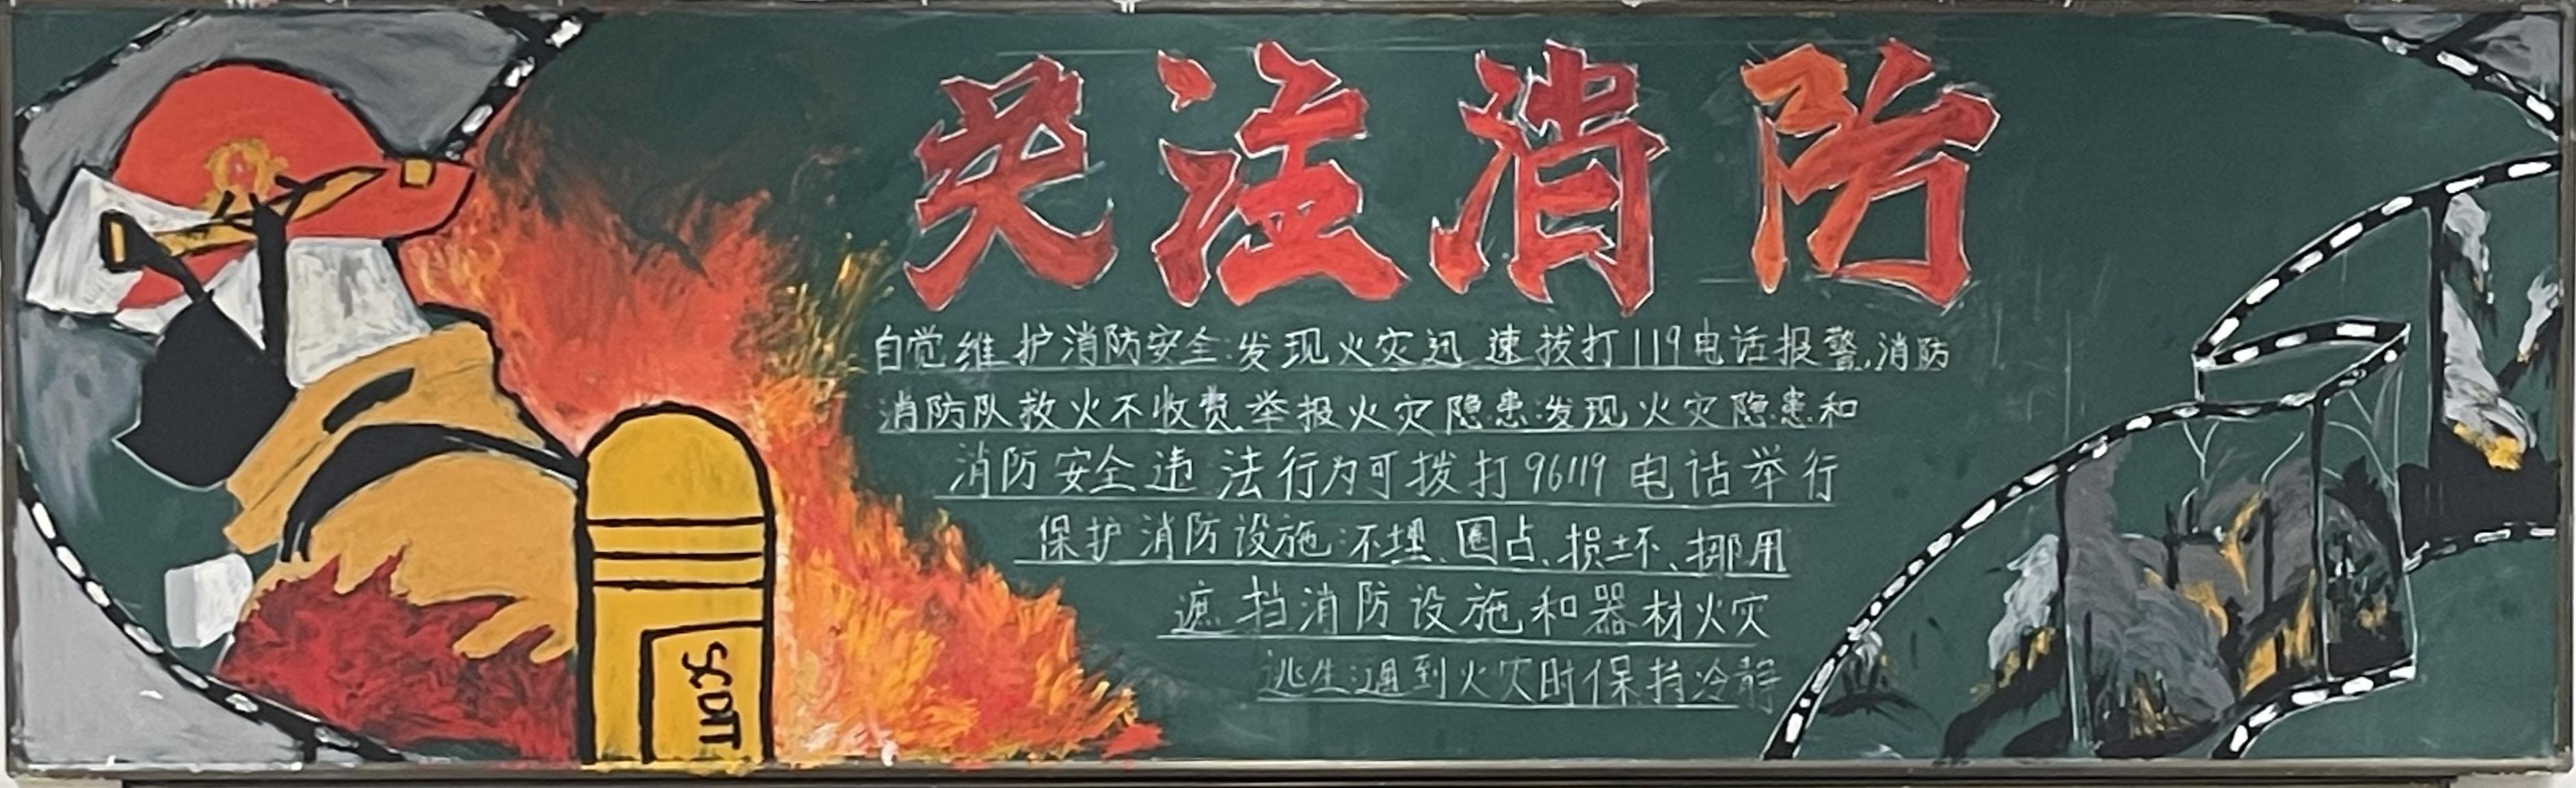 关注消防
自觉维护消防安全:发现火灾迅速拔打119电话报警,消防
消防队救火不收费.举报火灾隐患:发现火灾隐患和
消防安全违法行为可拨打96119电话举行
保护消防设施:不埋、圈占、损坏、挪用
遮挡消防设施和器材火灾
逃生:遇到火灾时保持冷静
SCOTT